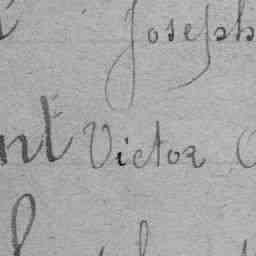 Joseph
nt Victor